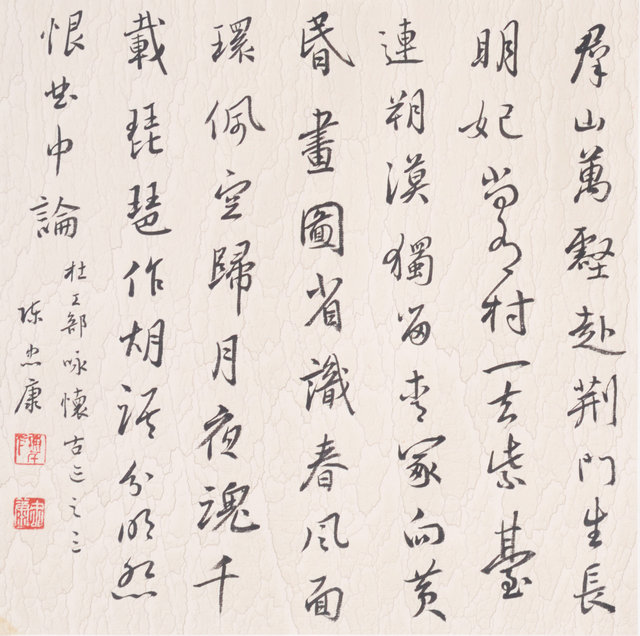 羣山萬壑赴荆門生長
明妃尚有村一去紫臺
連朔漠獨留青冢向黄
昏畫圖省識春风面
環佩空歸月夜魂千
載琵琶作胡語分明怨
恨曲中論
杜工部咏懷古迹之三
陈忠康